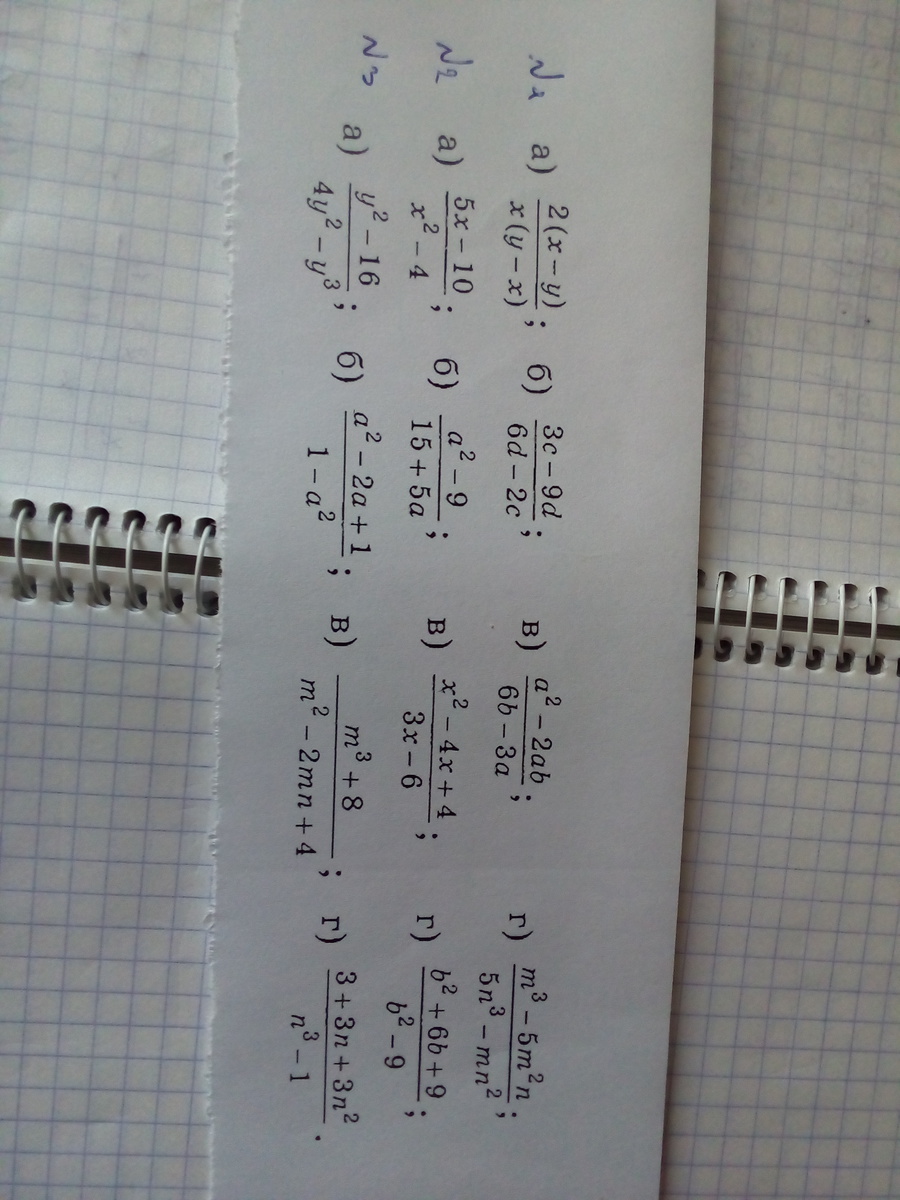 №1 а) 2(x − y)/x(y − x); б) 3c − 9d/6d − 2c; в) a² − 2ab/6b − 3a; г) m³ − 5m²n/5n³ − mn²;
№2 а) 5x − 10/x² − 4; б) a² − 9/15 + 5a; в) x² − 4x + 4/3x − 6; г) b² + 6b + 9/b² − 9;
№3 а) y² − 16/4y² − y³; б) a² − 2a + 1/1 − a²; в) m³ + 8/m² − 2mn + 4; г) 3 + 3n + 3n²/n³ − 1.